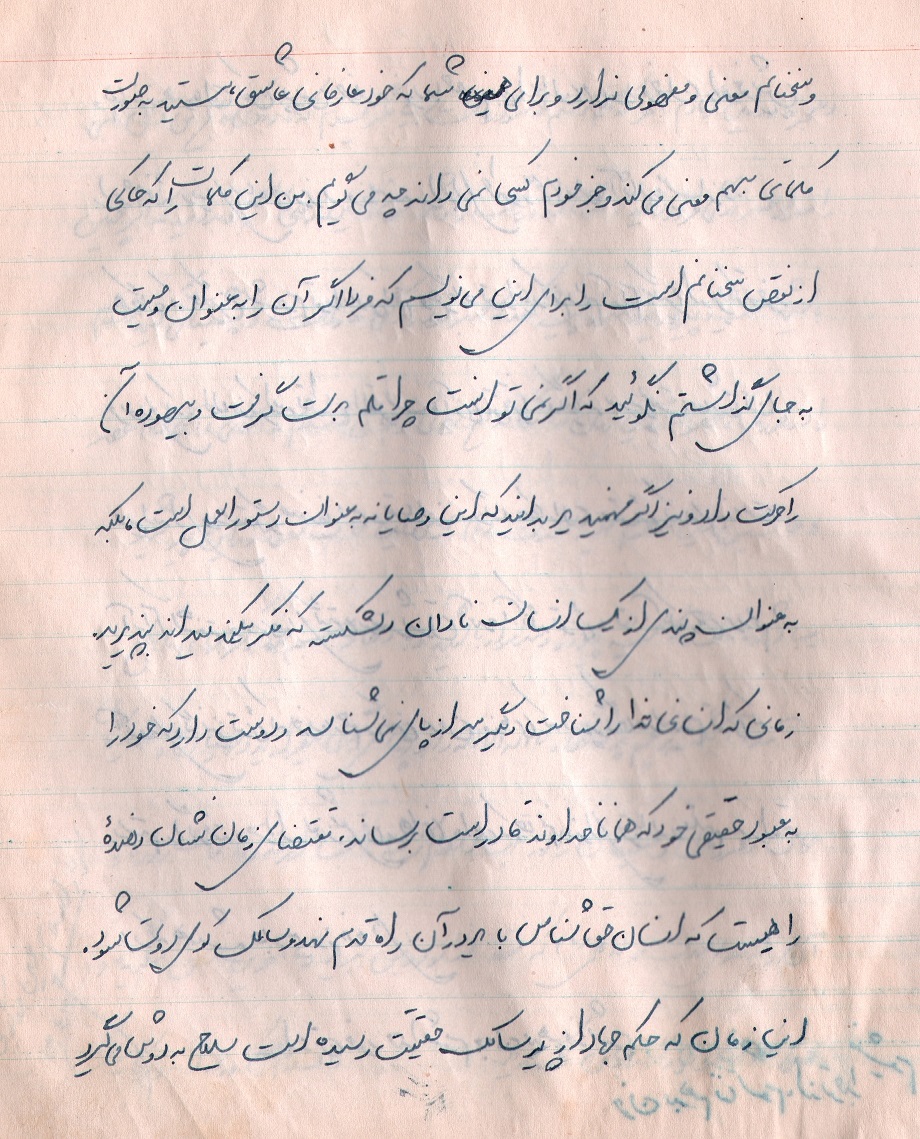 و سخنانم معنی و مفهومی ندارد و برای شما که خود عارفانی عاشق هستید به صورت
کلماتی مبهم معنی می‌کند و جز خودم کسی نمی داند چه می گویم. من این کلمات را که حاکی
از نقص سخنانم است را برای این می نویسم که فردا اگر آن را به عنوان وصیت
به جای گذاشتم نگوئید که اگر نمی توانست چرا قلم بدست گرفت و بیهوده آن
را حرکت داد و نیز اگر فهمیدید بدانید که این وصایا نه به عنوان دستورالعمل است، بلکه
به عنوان پندی از یک انسان نادان و شکسته که فکر میکند میداند بپذیرید.
زمانی که انسان خدا را شناخت دیگر سر از پای نمی شناسد و دوست دارد که خود را
به معبود حقیقی خود که همانا خداوند قادر است برساند. مقتضای زمان نشان دهندهٔ
راهیست که انسان حق شناس باید در آن راه قدم نهد و سالک کوی دوست شود.
این زمان که حکم جهاد از پیر سالک حقیقت رسیده است سلاح به دوش می گیرد